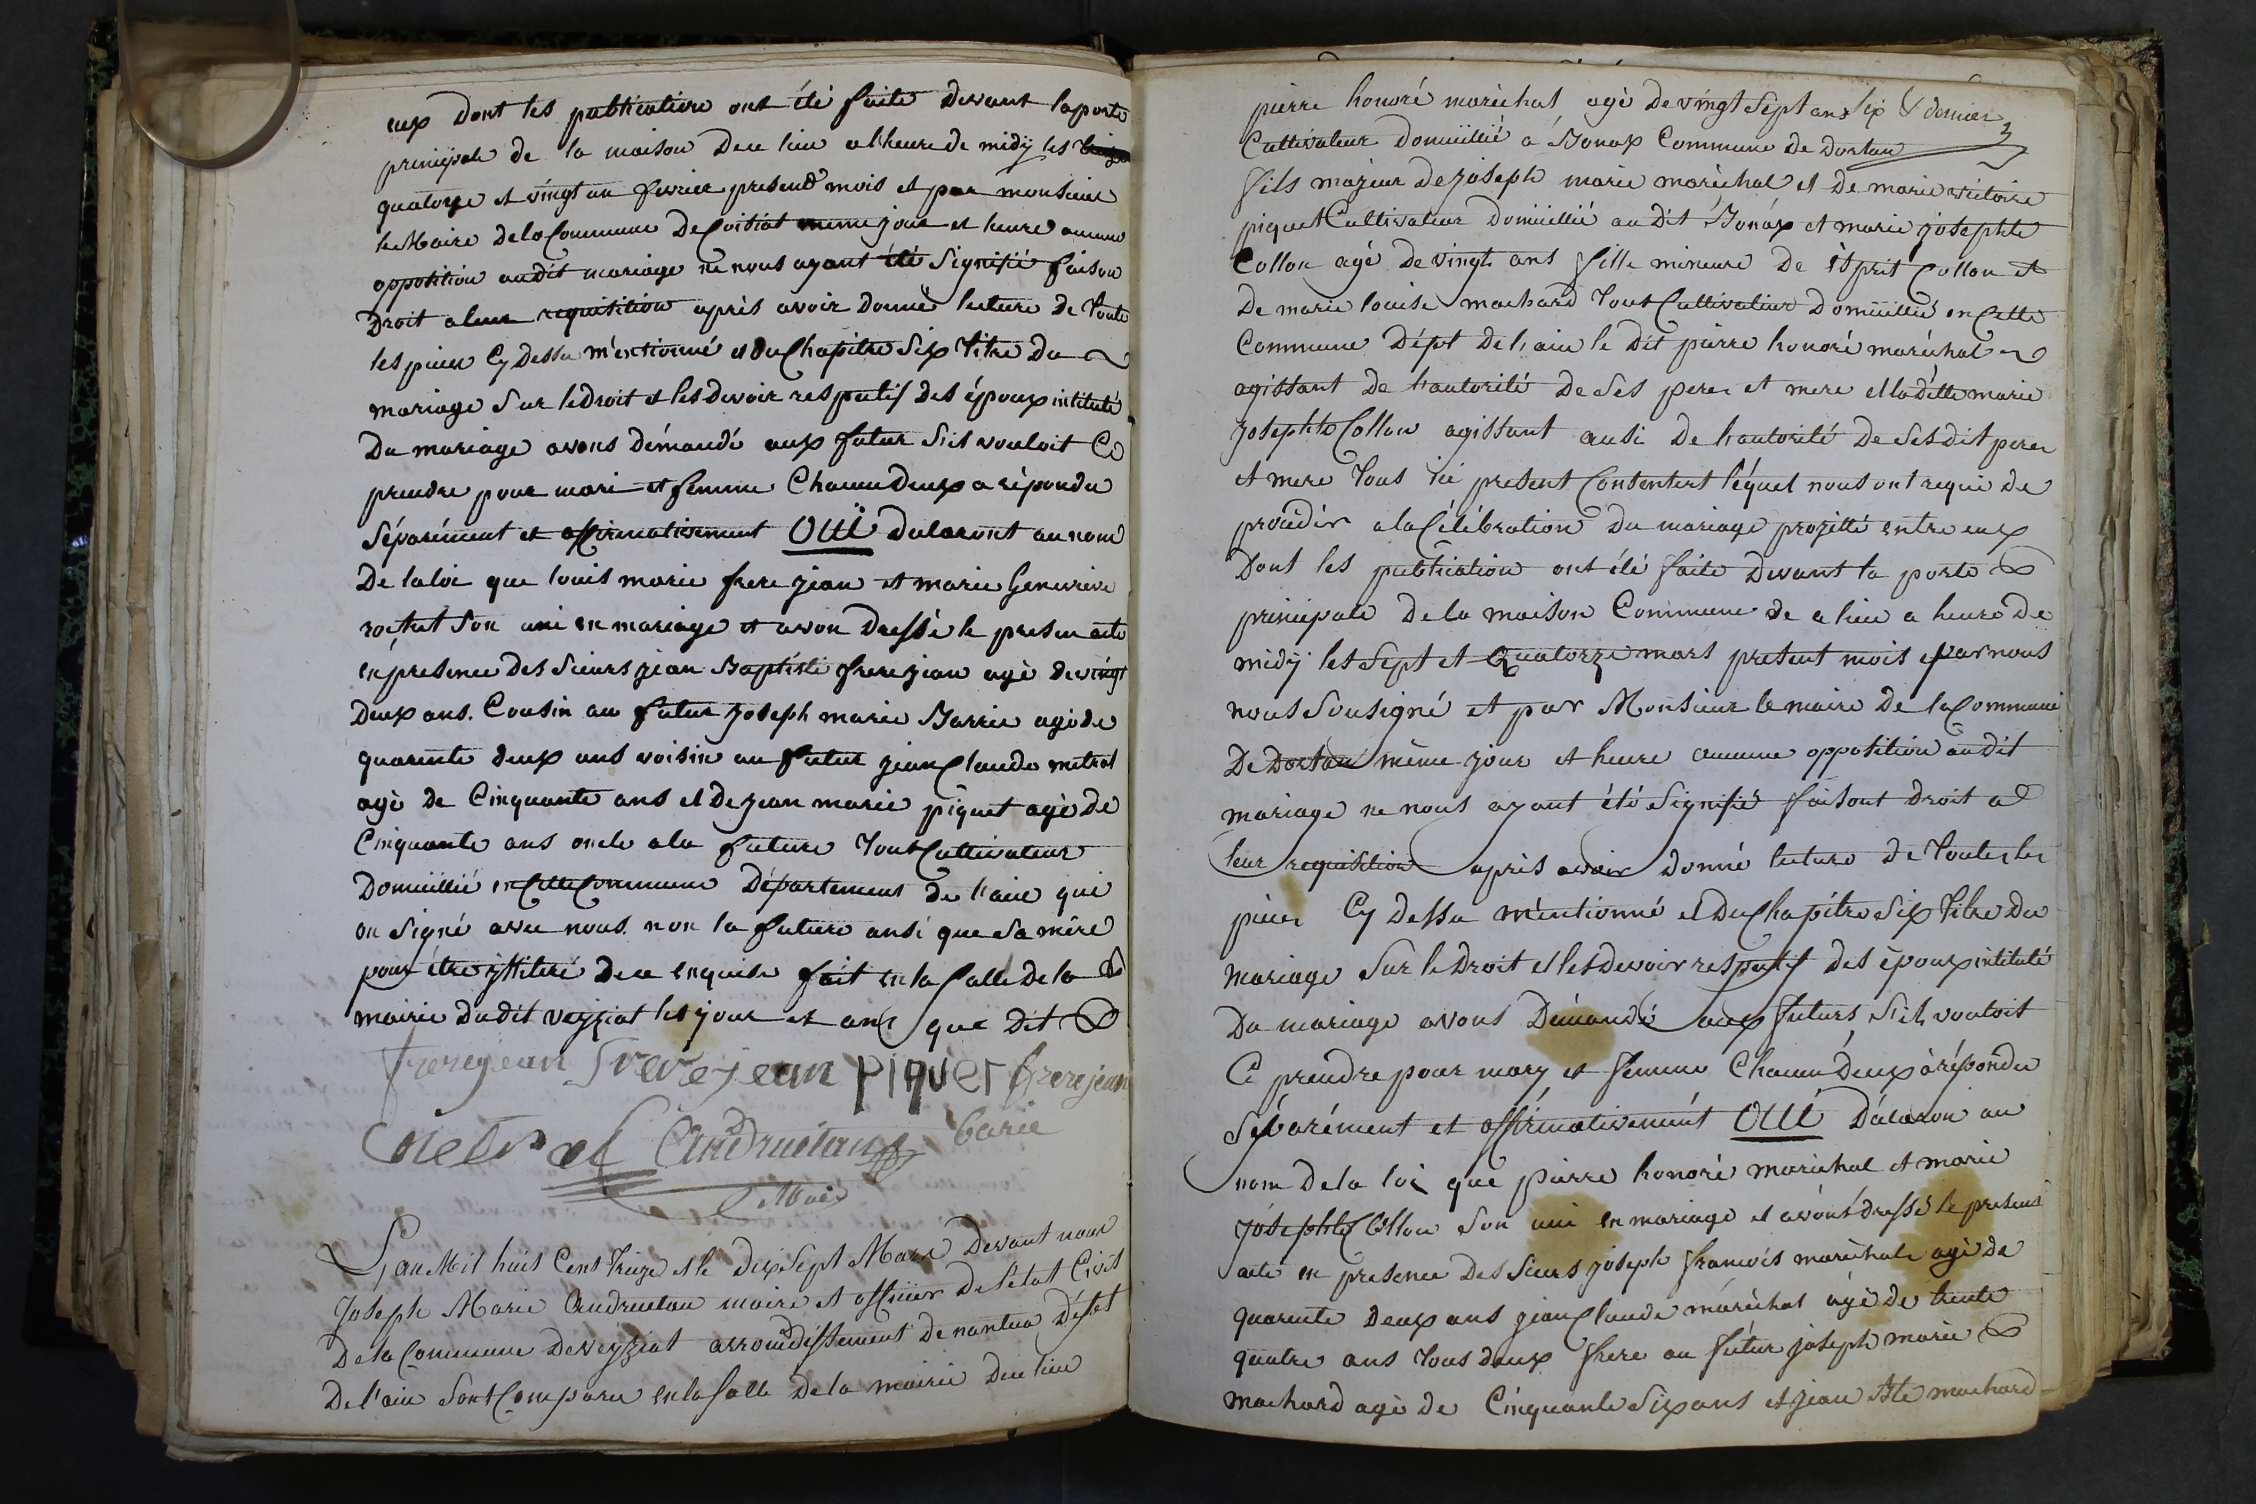 eux dont les publications ont été faite devant laporte
principale de la maison de ce lieu a lheure de midy les
quatorze et vingt un fevrier present mois et par monsieur
le Maire dela Commune De Coisiat meme jour et heure aucune
opposition audit mariage ne nous ayant été Signifié faison
Droit a leur requisition après avoir donné lecture de toute
les piecer Cy dessu mentionné et du Chapitre Six titre Du
mariage Sur le droit et les devoir respectif des époux intitulé
Du mariage avons démandé aux futur S'il vouloit Ce
prendre pour mari et femme Chacun deux a répondu
Séparément et affirmativement OUI declaront au nom
De la loi que louis marie frere jean et marie Genevieve
son uni en mariage et avon dressé le presen acte
en presence des Sieurs jean Baptiste frerejean agé de vingt
Deux ans. Cousin au futur joseph marie Barrie agé de
quarente deux ans voisin au futur jean Claude metral
agé de Cinquante ans et de jean marie piquet agé de
Cinquante ans oncle a la future tout Cultivateur
Domicillié en Cette Commune Département de l'ain qui
on Signé avec nous non la future ansi que Sa mère
pour être illiteré de ce enquise fait en la Salle de la
mairie du dit veyziat les jour et an que Dit
frerejean frerejean piquet frerejean
metral Andruetan barie
Maire
L'an Mil huit Cent treize et le dix Sept Mars Devant nous
Joseph Marie Andruetan maire et officier de l'etat Civil
De la Commune de veyziat arrondissement de nantua Dépt
De l'ain Sont Comparu en la Salle De la mairie de ce lieu
pierre honoré maréchal agé de vingt Sept ans
Cultivateur domicillié a Bonax Commune de Dortan
fils majeur de joseph marie maréchal et de marie victoire
piquet Cultivateur Domicillié au dit Bonax et marie josephte
Collon agé de vingt ans fille mineure de Esprit Collon et
De marie louise machard tout Cultivateur Domicillié en Cette
Commune Dépt de l'ain le Dit pierre honoré maréchal
agissant de l'autorité de Ses perer et mere et la ditte marie
josephte Collon agissant ausi de l'autorité de Ses dit perer
et mere tous ici present Consentent léquel nous ont requi de
procéder a la Célébration du mariage projetté entre eux
Dont les publication ont été faite devant la porte
principale de la maison Commune de ce lieu a heure de
midy les Sept et Quatorze mars present mois par nous
nous Sousigné et par Monsieur le maire de la Commune
De Dortan même jour et heure aucune opposition audit
mariage ne nous ayant été Signifié faisont droit a
leur requisition après avoir donné lecture de toutes les
piecer Cy dessu mentionné et du Chapitre Six titre Du
mariage Sur le Droit et les devoir respectif des époux intitulé
Du mariage avons Démandé aux futurs S'il vouloit
Ce prendre pour mary et femme Chacun deux a répondu
Séparément et affirmativement OUI déclaron au
nom de la loi que pierre honoré maréchal et marie
josephte Collon Son uni en mariage et avons dressé le present
acte en presence des Sieurs joseph francois maréchale agé de
quarente deux ans jean Claude maréchal agé de trente
quatre ans tous deux frere au futur joseph marie
machard agé de Cinquante Six ans et jean Bte machard